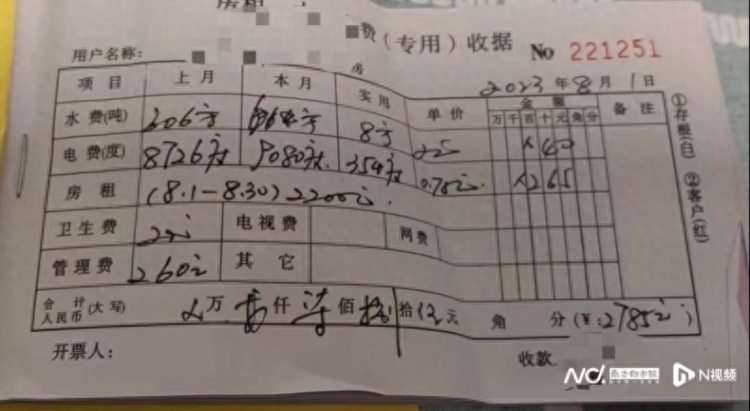 房租 费(专用)收据 No 221251
用户名称: 房 2023年8月1日
项目 上月 本月 实用 单价 金额 备注
万千百十元角分
水费(吨) 206方 8方
电费(度) 8726度 9080度 354度 0.75元 ×265
房租 (8.1-8.30) 2200元
卫生费 电视费 网费
管理费 260元 其它
合计人民币(大写) 万 仟 佰 拾 元 角 分(¥:2785元)
开票人: 收款
①存根(白) ②客户(红)
N视频